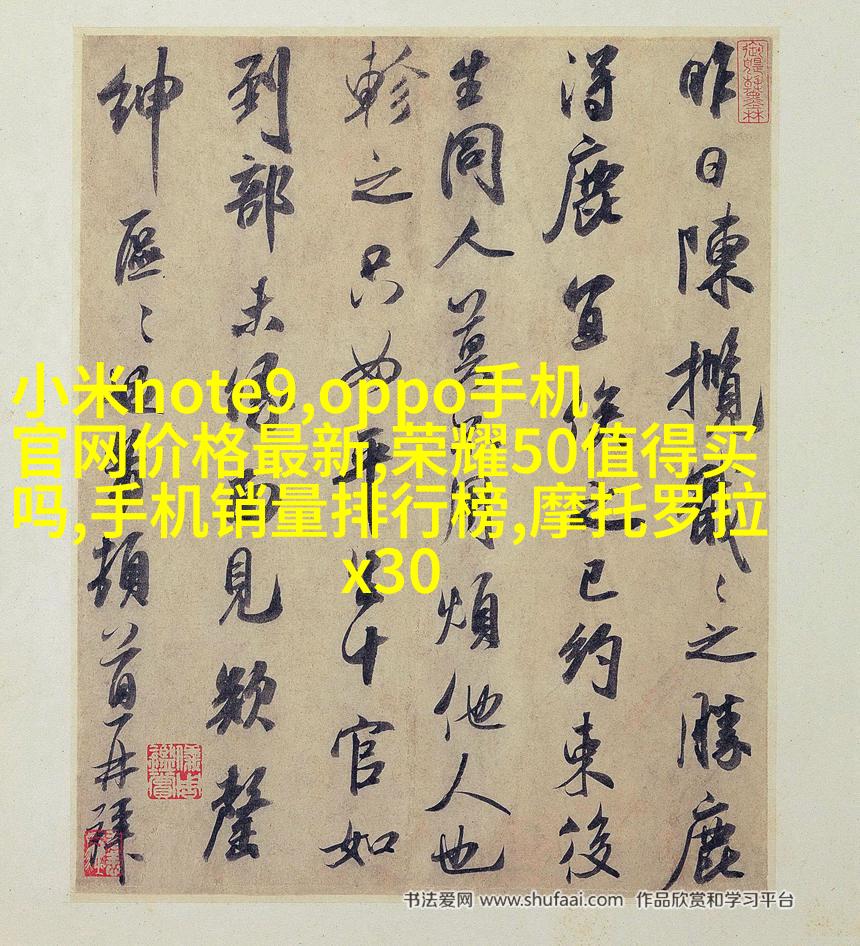 小米note9,oppo手机
官网价格最新,荣耀50值得买
吗,手机销量排行榜,摩托罗拉
x30
昨日陳攬戢〻之勝鹿
得鹿宜已約束後
生同人莫煩他人也
軫之只十官如
到部未見欵罄
紳區〻頓首再拜
书法爱网 www.shufaai.com 作品欣赏和学习平台